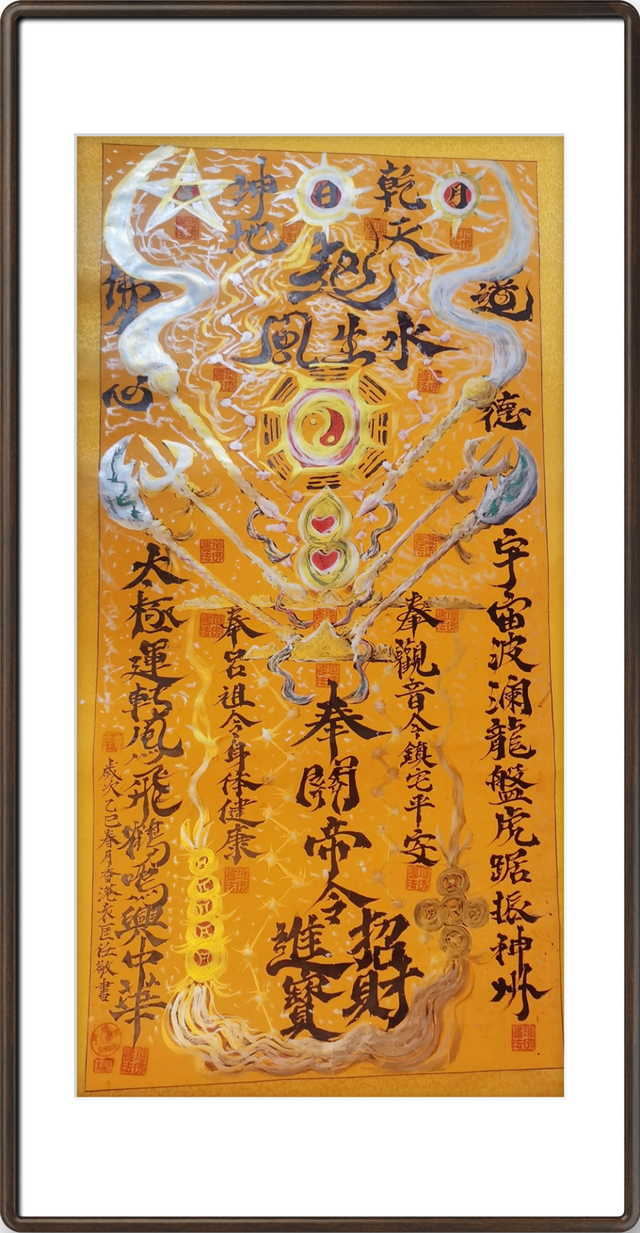 月
乾天
日
坤地
起
水生風
道德
佛心
宇宙波澜龍盤虎踞振神州
奉觀音令鎮宅平安
奉關帝令
招財
進寶
奉呂祖令身体健康
太極運轉鳳飛鶴鳴興中華
歲次乙巳春月香港袁匡敬書